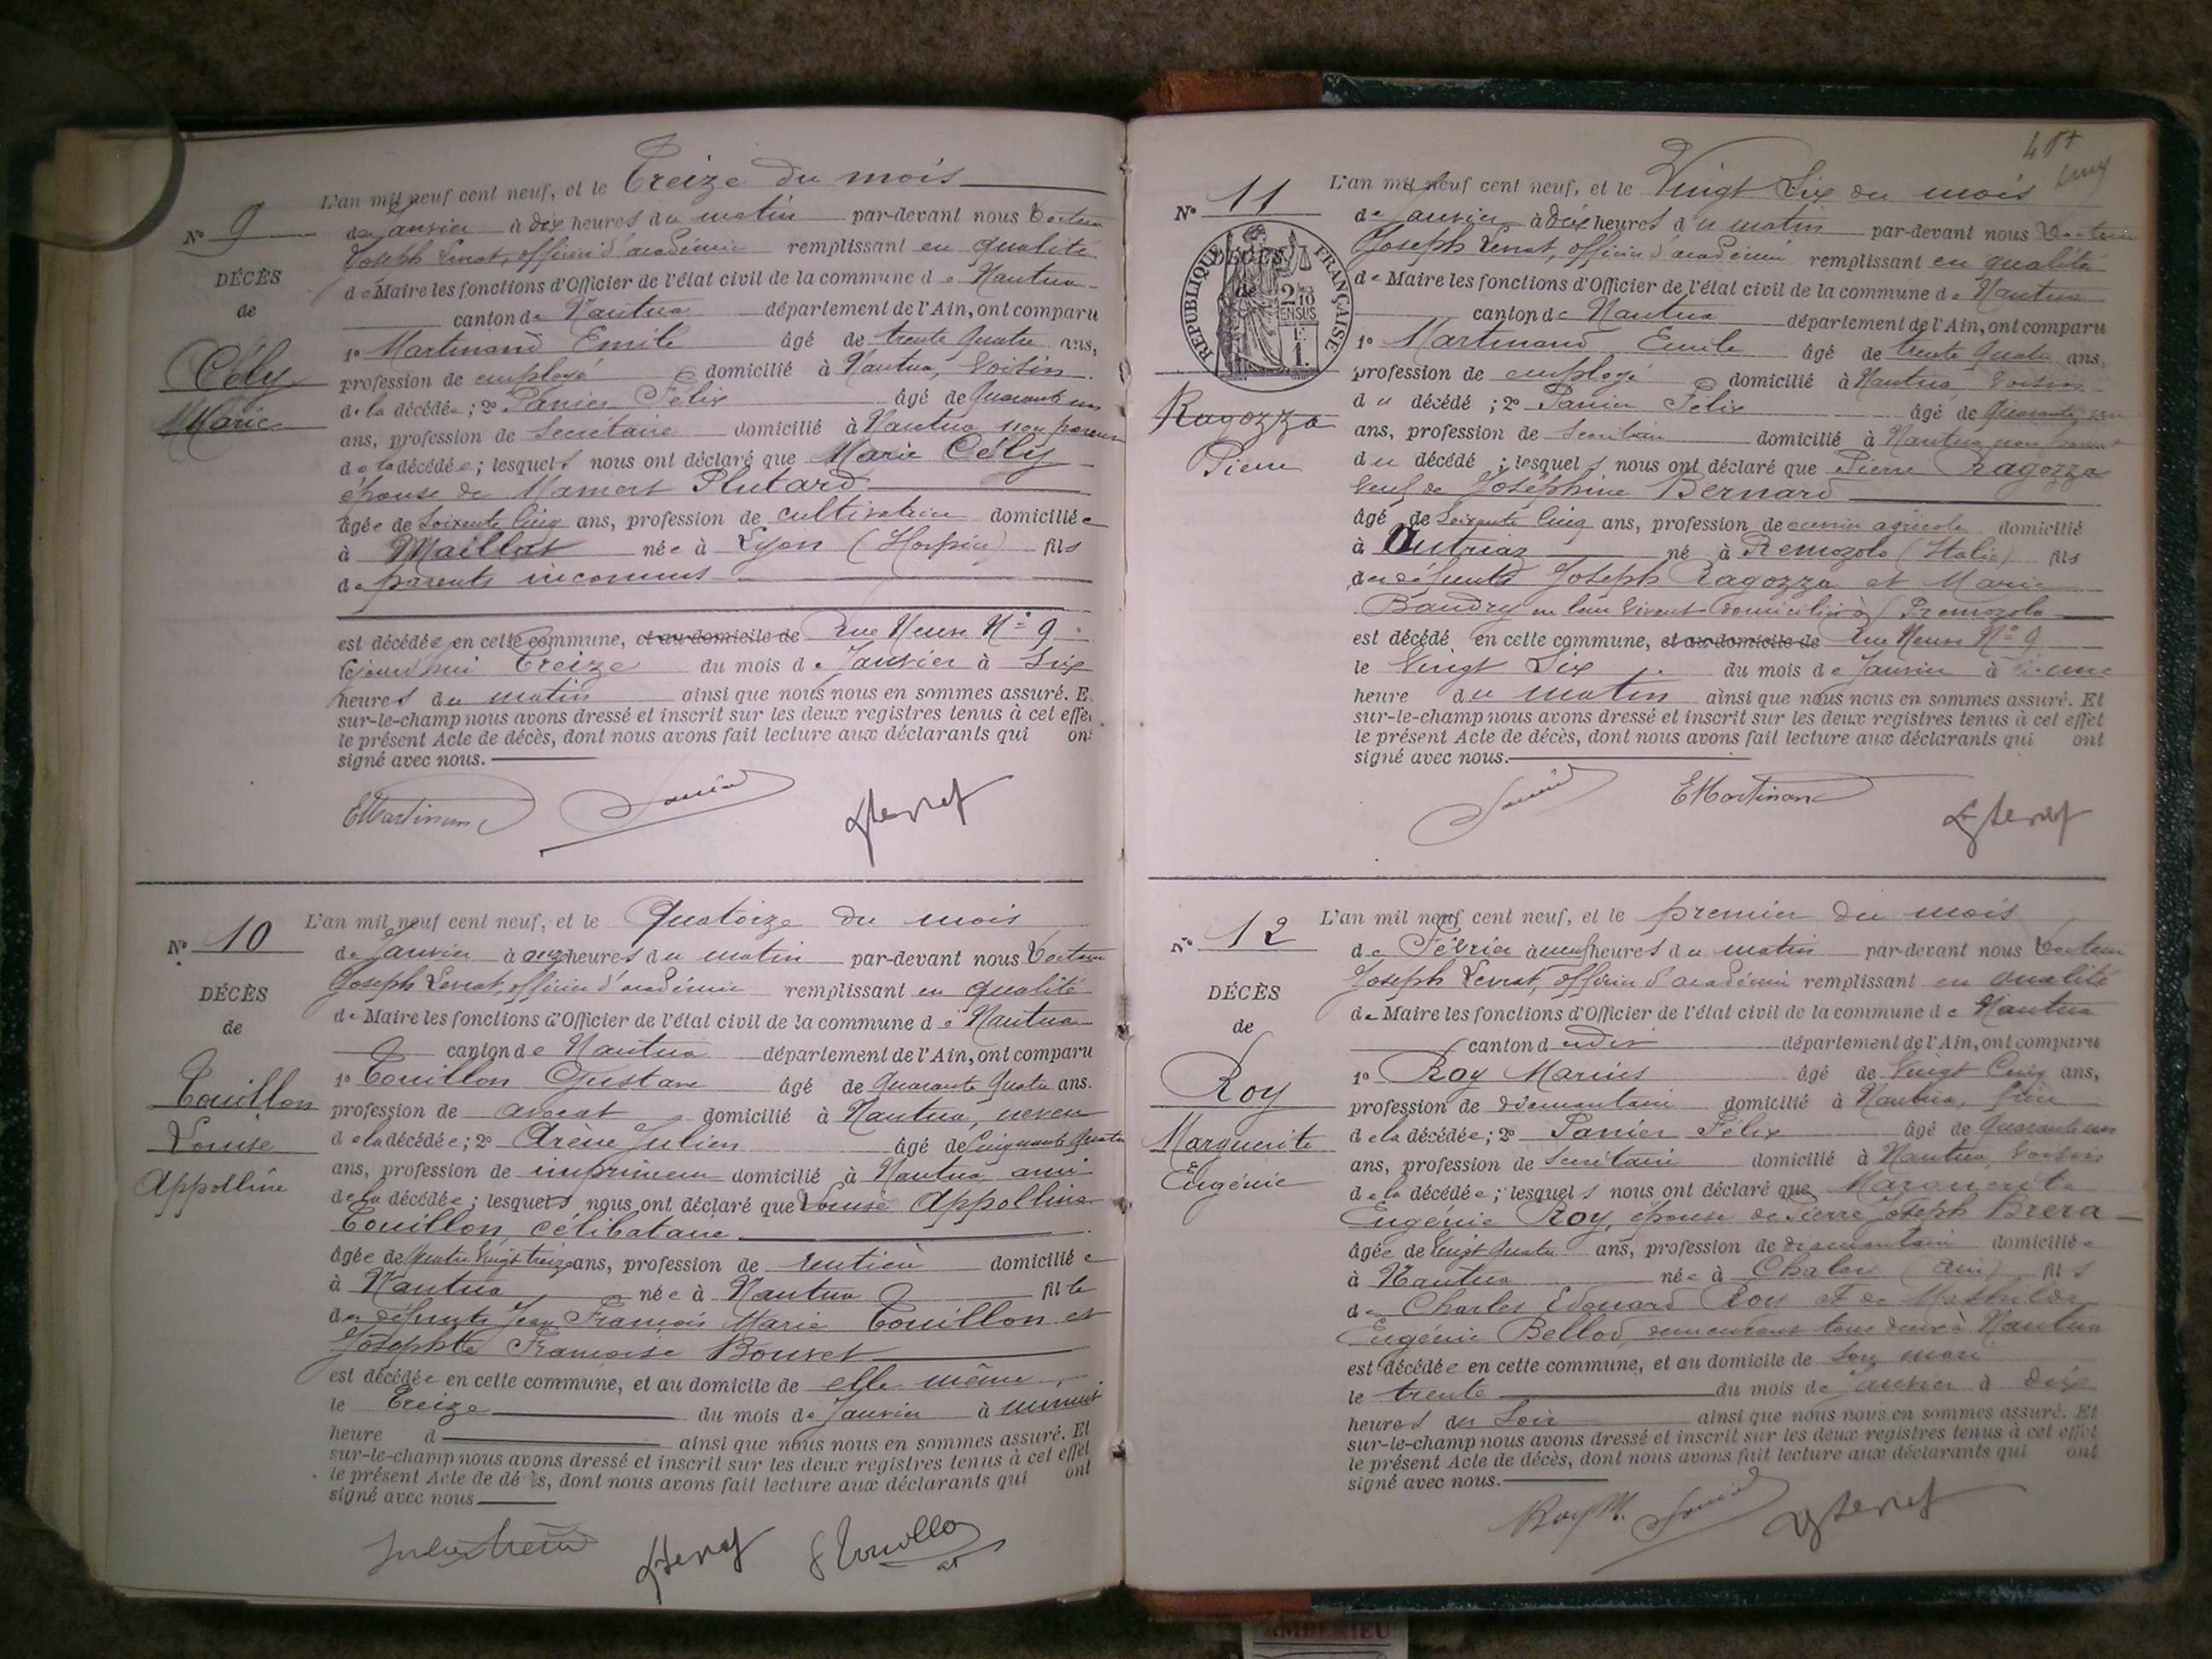 L'an mil neuf cent neuf, et le Treize du mois
N° 9
de Janvier à dix heures du matin par-devant nous Docteur
Joseph Levrat, officier d'académie remplissant en qualité
DÉCÈS
de Maire les fonctions d'Officier de l'état civil de la commune de Nantua
de
canton de Nantua département de l'Ain, ont comparu
1° Martinand Emile âgé de trente quatre ans,
Cély
profession de employé domicilié à Nantua, voisin
de la décédée; 2° Panier Félix âgé de quarante un
Marie
ans, profession de Secrétaire domicilié à Nantua non parent
de la décédée; lesquels nous ont déclaré que Marie Cély
épouse de Mamert Plutard
âgée de soixante cinq ans, profession de cultivatrice domiciliée
à Maillat née à Lyon (Hospice) fils
de parents inconnus
est décédée en cette commune, et au domicile de Rue Neuve N° 9
le jourd'hui Treize du mois de Janvier à six
heures du matin ainsi que nous nous en sommes assuré. E
sur-le-champ nous avons dressé et inscrit sur les deux registres tenus à cet effe
le présent Acte de décès, dont nous avons fait lecture aux déclarants qui on
signé avec nous.
EMartinand
L'an mil neuf cent neuf, et le Quatorze du mois
N° 10
de Janvier à onze heures du matin par-devant nous Docteur
Joseph Levrat, officier d'académie remplissant en qualité
DÉCÈS
de Maire les fonctions d'Officier de l'état civil de la commune de Nantua
de
canton de Nantua département de l'Ain, ont comparu
Touillon
1° Touillon Gustave âgé de quarante quatre ans.
profession de avocat domicilié à Nantua, neveu
Louise
de la décédée; 2° Arène Julien âgé de cinquante quatre
Appolline
ans, profession de imprimeur domicilié à Nantua, ami
de la décédée; lesquels nous ont déclaré que Louise Appolline
Touillon, célibataire
âgée de quatre vingt treize ans, profession de rentière domiciliée
à Nantua née à Nantua fille
de défunts Jean François Marie Touillon et
Josephte Françoise Bouvet
est décédée en cette commune, et au domicile de elle même
le Treize du mois de Janvier à minuit
heure d ainsi que nous nous en sommes assuré. Et
sur-le-champ nous avons dressé et inscrit sur les deux registres tenus à cet effet
le présent Acte de dé s, dont nous avons fait lecture aux déclarants qui ont
signé avec nous
L'an mil neuf cent neuf, et le Vingt Six du mois
N° 11
de Janvier à dix heures du matin par-devant nous Docteur
Joseph Levrat, officier d'académie remplissant en qualité
RÉPUBLIQUE FRANÇAISE
de Maire les fonctions d'Officier de l'état civil de la commune de Nantua
canton de Nantua département de l'Ain, ont comparu
1° Martinand Emile âgé de trente quatre ans,
profession de employé domicilié à Nantua, voisin
Ragozza
du décédé; 2° Panier Félix âgé de quarante un
ans, profession de Secrétaire domicilié à Nantua non parent
Pierre
du décédé; lesquels nous ont déclaré que Pierre Ragozza
veuf de Joséphine Bernard
âgé de soixante cinq ans, profession de ouvrier agricole domicilié
à Outriaz né à Premozolo (Italie) fils
de défunts Joseph Ragozza et Marie
Baudry en leur vivant domiciliés à Premozolo
est décédé en cette commune, et au domicile de Rue Neuve N° 9
le Vingt Six du mois de Janvier à une
heure du matin ainsi que nous nous en sommes assuré. Et
sur-le-champ nous avons dressé et inscrit sur les deux registres tenus à cet effet
le présent Acte de décès, dont nous avons fait lecture aux déclarants qui ont
signé avec nous.
EMartinand
L'an mil neuf cent neuf, et le premier du mois
N° 12
de Février à neuf heures du matin par-devant nous Docteur
Joseph Levrat, officier d'académie remplissant en qualité
DÉCÈS
de Maire les fonctions d'Officier de l'état civil de la commune de Nantua
de
canton dudit département de l'Ain, ont comparu
Roy
1° Roy Marius âgé de vingt cinq ans,
profession de diamantaire domicilié à Nantua, frère
Marguerite
de la décédée; 2° Panier Félix âgé de quarante un
Eugénie
ans, profession de Secrétaire domicilié à Nantua, voisin
de la décédée; lesquels nous ont déclaré que Marguerite
Eugénie Roy, épouse de Pierre Joseph Brera
âgée de vingt quatre ans, profession de diamantaire domiciliée
à Nantua née à Chaley (Ain) fils
de Charles Edouard Roy et de Mathilde
Eugénie Bellod, demeurant tous deux à Nantua
est décédée en cette commune, et au domicile de son mari
le trente du mois de Janvier à dix
heures du soir ainsi que nous nous en sommes assuré. Et
sur-le-champ nous avons dressé et inscrit sur les deux registres tenus à cet effet
le présent Acte de décès, dont nous avons fait lecture aux déclarants qui ont
signé avec nous.
Roy M.